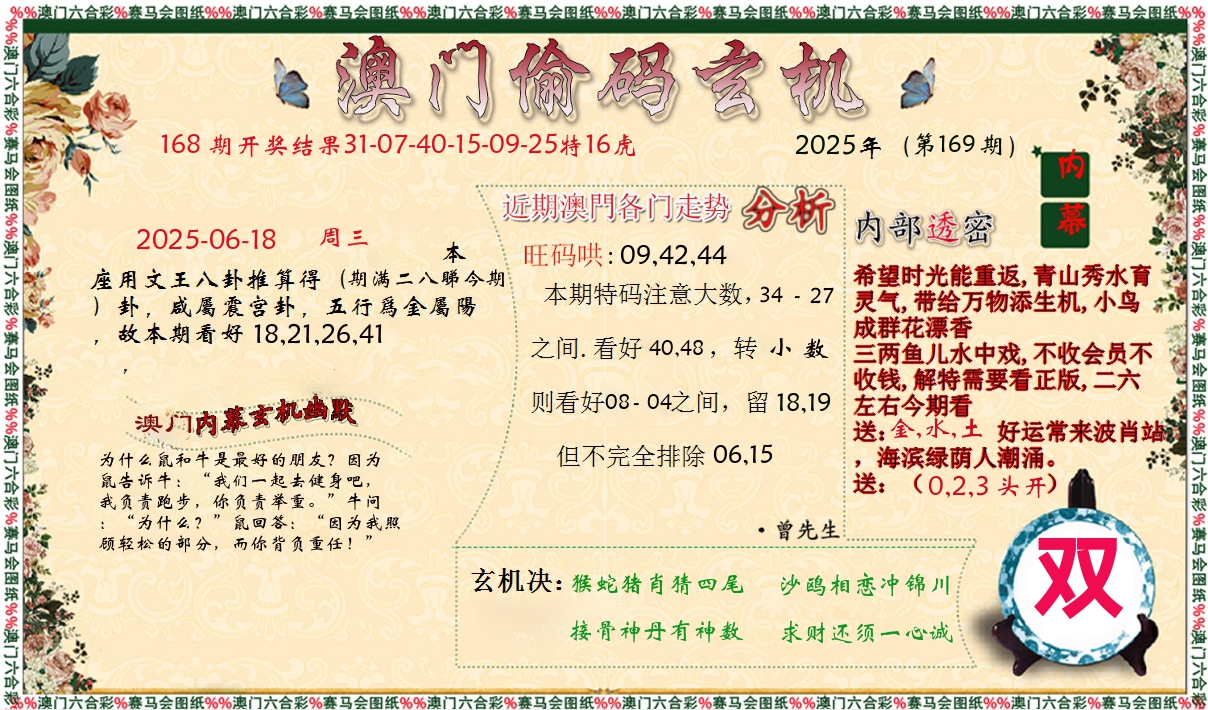 %%澳门六合彩%赛马会图纸%%澳门六合彩%赛马会图纸%%澳门六合彩%赛马会图纸%%澳门六合彩%赛马会图纸%%澳门六合彩%赛马会图纸%%澳门六合彩%赛马会图纸%%
澳门偷码玄机
168 期开奖结果31-07-40-15-09-25特16虎
2025年（第169 期）
内幕
2025-06-18 周三
本
座用文王八卦推算得（期满二八睇今期
）卦，咸屬震宫卦，五行爲金屬陽
，故本期看好 18,21,26,41
，
澳门内幕玄机幽默
为什么鼠和牛是最好的朋友？因为
鼠告诉牛：“我们一起去健身吧，
我负责跑步，你负责举重。”牛问
：“为什么？”鼠回答：“因为我照
顾轻松的部分，而你背负重任！”
近期澳門各门走势 分析
旺码哄: 09,42,44
本期特码注意大数, 34 - 27
之间. 看好 40,48 , 转 小 数
则看好08 - 04之间，留 18,19
但不完全排除 06,15
·曾先生
内部透密
希望时光能重返, 青山秀水育
灵气, 带给万物添生机, 小鸟
成群花漂香
三两鱼儿水中戏, 不收会员不
收钱, 解特需要看正版, 二六
左右今期看
送: 金, 水, 土 好运常来波肖站
，海滨绿荫人潮涌。
送：（0,2,3 头开）
玄机决: 猴蛇猪肖猜四尾 沙鸥相恋冲锦川
接骨神丹有神数 求财还须一心诚
双
%%澳门六合彩%赛马会图纸%%澳门六合彩%赛马会图纸%%澳门六合彩%赛马会图纸%%澳门六合彩%赛马会图纸%%澳门六合彩%赛马会图纸%%澳门六合彩%赛马会图纸%%